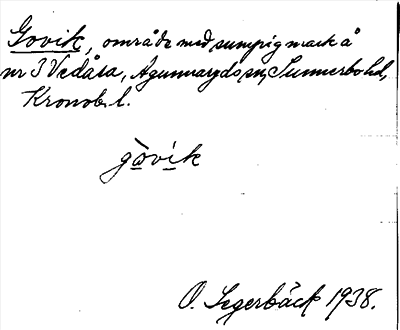 Govik, område med sumpig mark å
nr 3 Vedåsa, Agunnaryds sn, Sunnerbo hd,
Kronob. l.
gòvík
O. Segerbäck 1938.